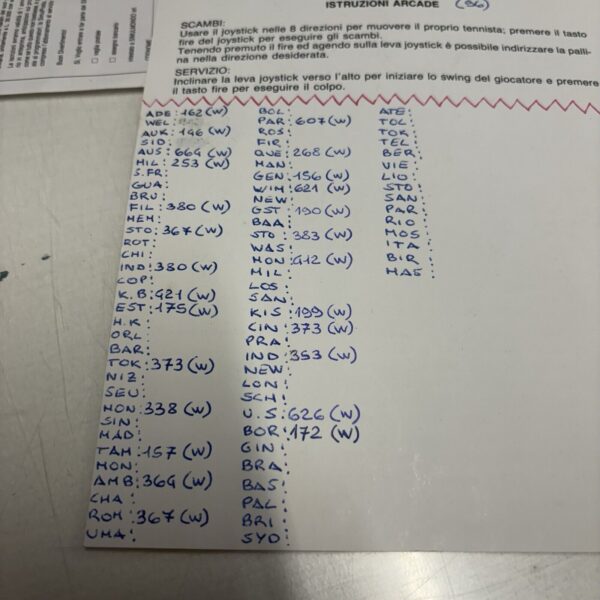 ISTRUZIONI ARCADE (86)
SCAMBI:
Usare il joystick nelle 8 direzioni per muovere il proprio tennista; premere il tasto
fire del joystick per eseguire gli scambi.
Tenendo premuto il fire ed agendo sulla leva joystick è possibile indirizzare la palli-
na nella direzione desiderata.
SERVIZIO:
Inclinare la leva joystick verso l'alto per iniziare lo swing del giocatore e premere
il tasto fire per eseguire il colpo.
ADE: 162 (W)
WEL:
AUK: 146 (W)
SID:
AUS: 664 (W)
MIL: 253 (W)
S.FR:
GUA:
BRU:
FIL: 380 (W)
MEM:
STO: 367 (W)
ROT:
CHI:
IND: 380 (W)
COP:
K.B: 421 (W)
EST: 175 (W)
H.K:
ORL:
BAR:
TOK: 373 (W)
NIZ:
SEU:
MON: 338 (W)
SIN:
MAD:
TAM: 157 (W)
MON:
AMB: 364 (W)
CHA:
ROM: 367 (W)
UMA:
BOL:
PAR: 607 (W)
ROS:
FIR:
QUE: 268 (W)
MAN:
GEN: 156 (W)
WIM: 621 (W)
NEW:
GST: 190 (W)
BAA:
STO: 383 (W)
WAS:
MON: 412 (W)
MIL:
LOS:
SAN:
KIS: 199 (W)
CIN: 373 (W)
PRA:
IND: 353 (W)
NEW:
LON:
SCH:
U.S: 626 (W)
BOR: 172 (W)
GIN:
BRA:
BAS:
PAL:
BRI:
SYD:
ATE:
TOL:
TOK:
TEL:
BER:
VIE:
LIO:
STO:
SAN:
PAR:
RIO:
MOS:
ITA:
BIR:
MAS: